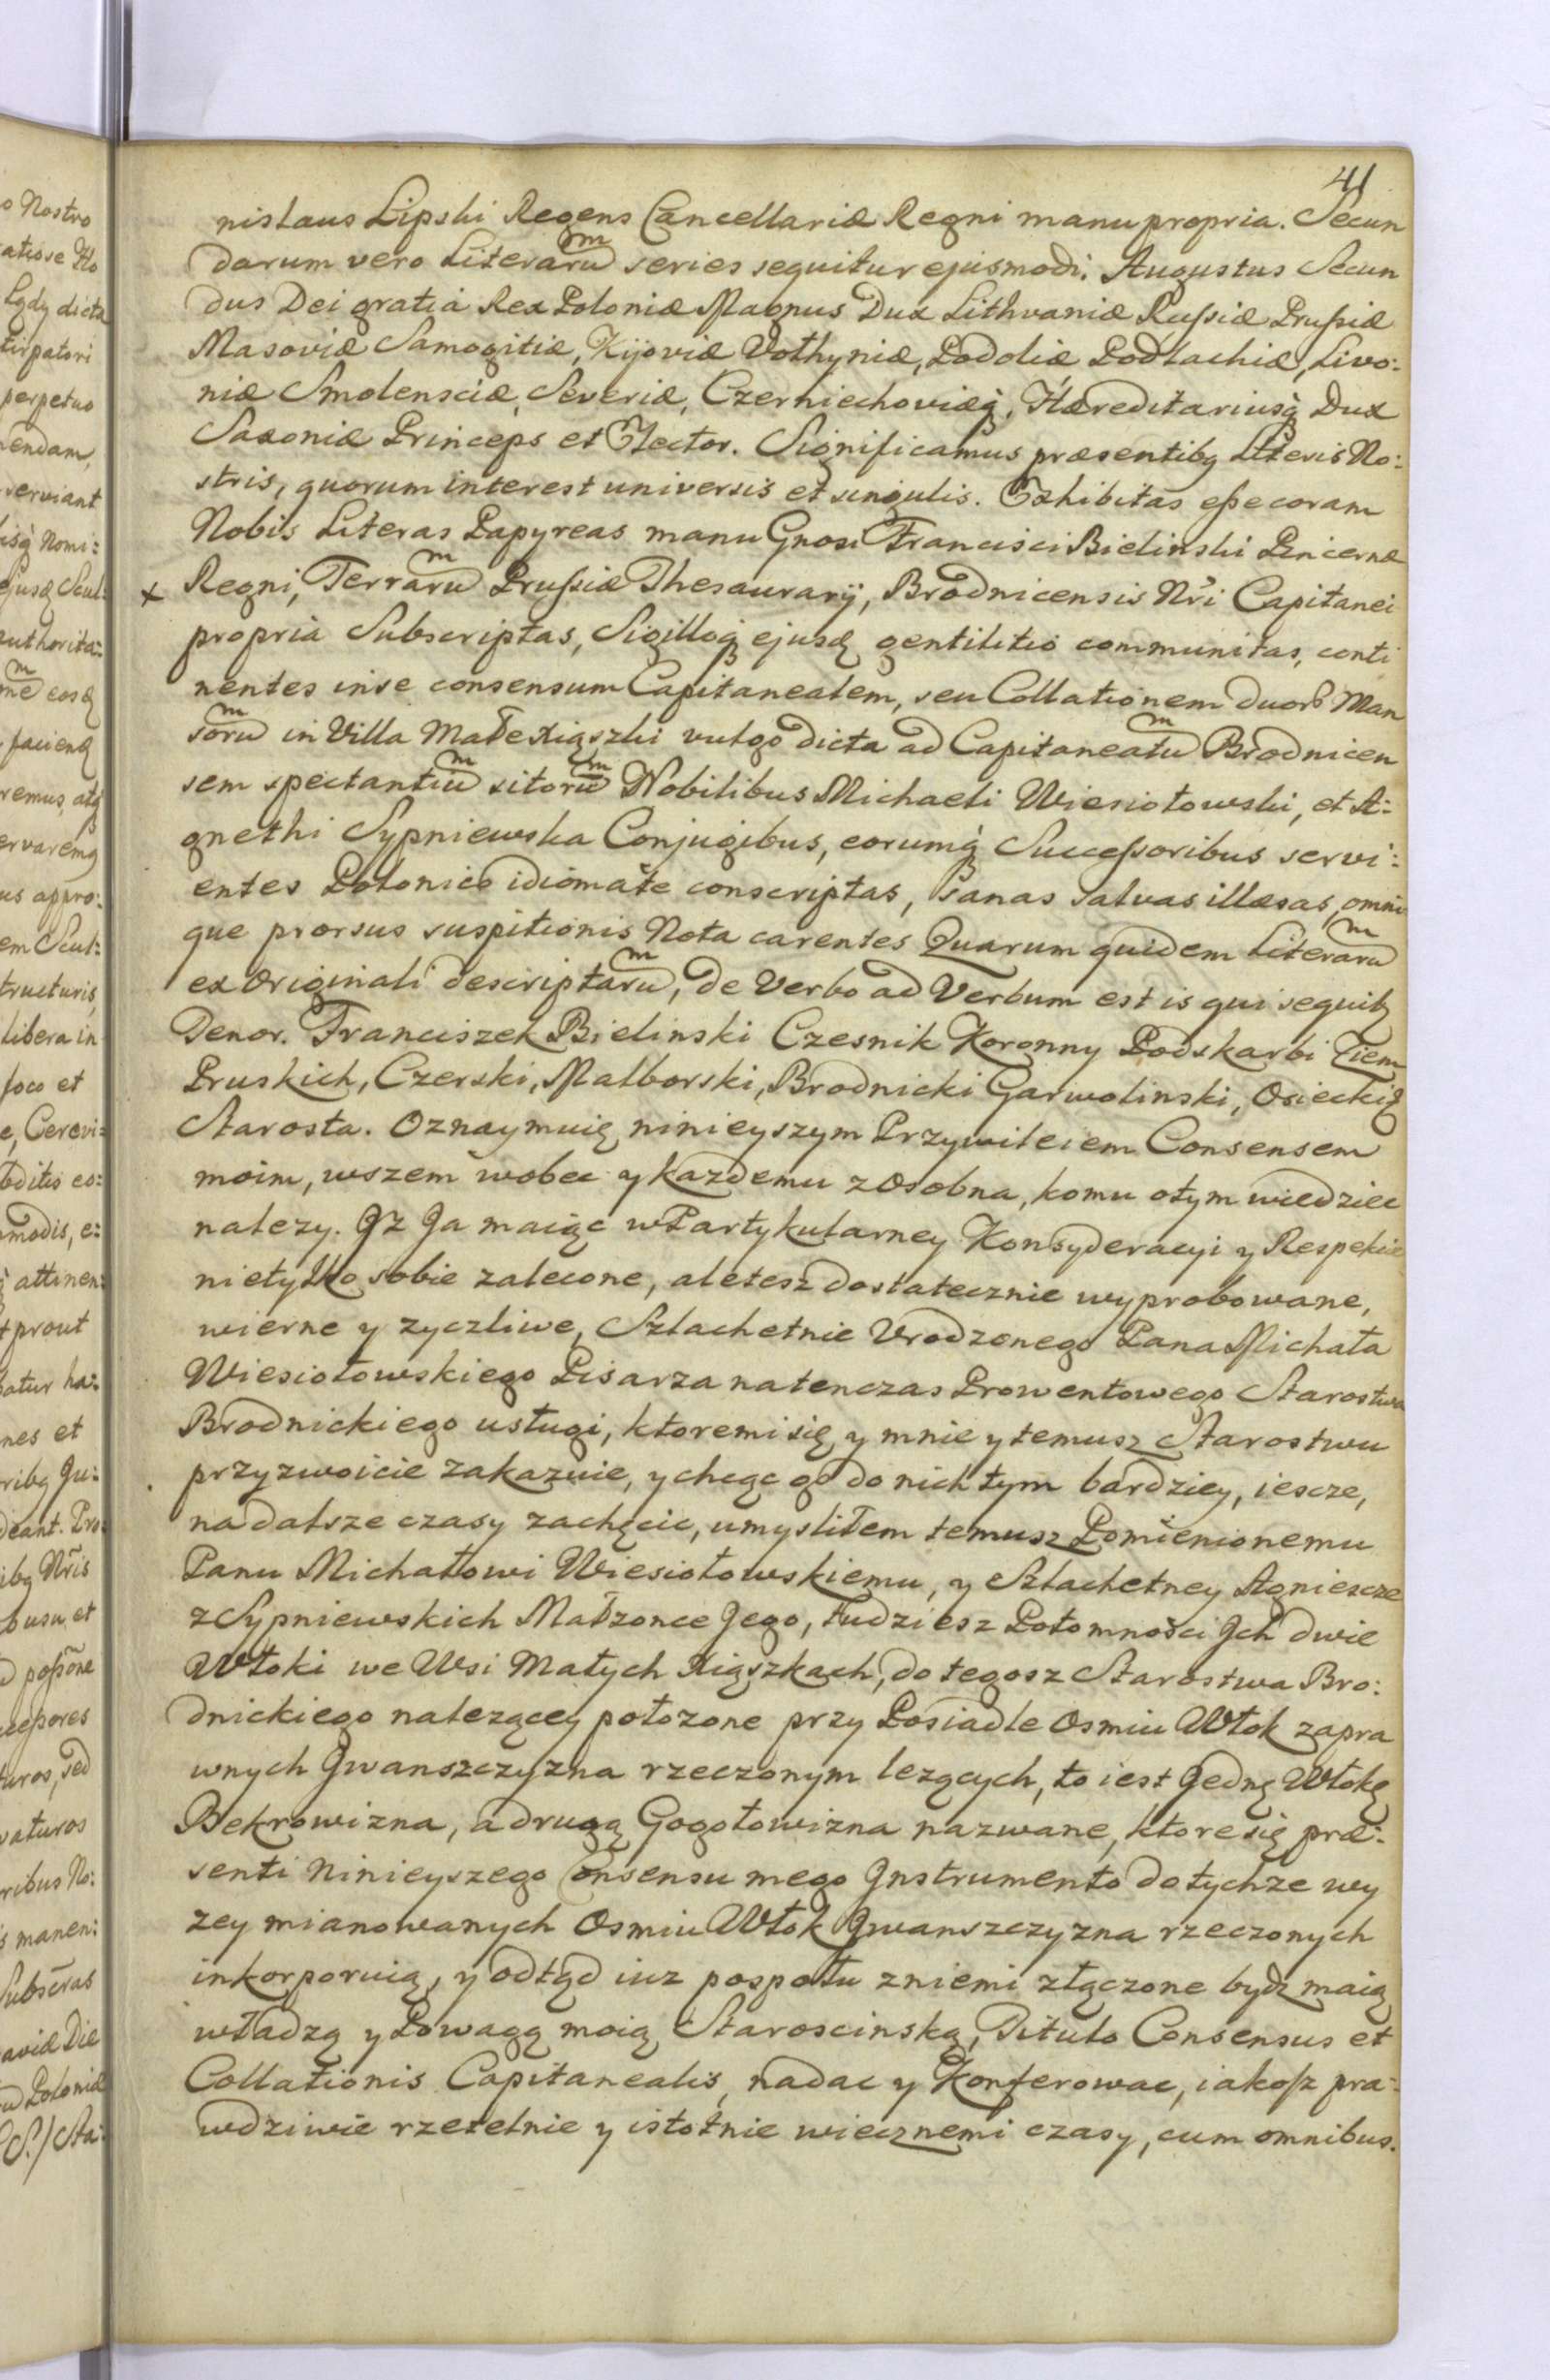 41
nislaus Lipski Regens Cancellariæ Regni manu propria. Secun
darum vero Literarum series sequitur ejusmodi. Augustus Secun
dus Dei gratia Rex Poloniæ Magnus Dux Lithvaniæ Russiæ Prussiæ
Masoviæ Samogitiæ, Kijoviæ Vołhyniæ, Podoliæ Podlachiæ, Livo:
niæ Smolensciæ, Severiæ, Czerniechoviæq̀, Hæreditariusq̀ Dux
Saxoniæ Princeps et Elector. Significamus præsentibq Literis No:
stris, quorum interest universis et singulis. Exhibitas esse coram
Nobis Literas Papyreas manu Gnosi Francisci Bielinski Pincernæ
x Regni, Terrarum Prussiæ Thesaurarÿ, Brodnicensis Nr̃i Capitanei
propria Subscriptas, Sigilloq̀ ejusq gentilitio communitas, conti
nentes in se consensum Capitanealem, seu Collationem duorũ Man
sorum in Villa Małe Xiąszki vulgo dicta ad Capitaneatum Brodnicen
sem spectantium sitorum Nobilibus Michaeli Wiesiołowski, et A:
gnethi Sypniewska Conjugibus, eorumq̀ Successoribus servi:
entes Polonico idiomate conscriptas, sanas salvas illæsas, omni
que prorsus suspitionis Nota carentes Quarum quidem Literarum
ex Originali descriptarum, de Verbo ad Verbum est is qui sequitq
Tenor. Franciszek Bielinski Czesnik Koronny Podskarbi Ziem
Pruskich, Czerski, Malborski, Brodnicki Garwolinski, Osieckię
Starosta. Oznaymuię ninieyszym Przywileiem Consensem
moim, wszem wobec y każdemu z Osobna, komu o tym wiedziec
nalezy. Jz Ja maiąc w Partykularney Konsyderacyi y Respekcie
nietylko sobie zalecone, ale tesz dostatecznie wyprobowane,
wierne y zyczliwe, Szlachetnie Vrodzonego Pana Michała
Wiesiołowskiego Pisarza natenczas Prowentowego Starostwa
Brodnickiego usługi, ktoremi się y mnie y temusz Starostwu
przyzwoicie zakazuie, y chcąc go do nich tym bardziey, iescze,
na dalsze czasy zachęcic, umysliłem temusz Pomienionemu
Panu Michałowi Wiesiołowskiemu, y Szlachetney Agniescze
z Sypniewskich Małzonce Jego, tudziesz Potomności Jch dwie
Włoki we Wsi Małych Xiąszkach, do tegosz Starostwa Bro:
dnickiego nalezącey położone przy Posiadle Osmiu Włok zapra
wnych Jwanszczyzna rzeczonym lezących, to iest Jedną Włokę
Bekrowizna, a drugą Gogołowizna nazwane, ktore się præ:
senti Ninieyszego Consensu mego Jnstrumento do tychze wy
zey mianowanych Osmiu Włok Jwanszczyzna rzeczonych
inkorporuią, y odtąd iuz pospołu z niemi złączone bydz maią
władzą y Powagą moią Staroscinską, Titulo Consensus et
Collationis Capitanealis, nadac y Konferowac, iakosz pra:
wdziwie rzetelnie y istotnie wiecznemi czasy, cum omnibus.